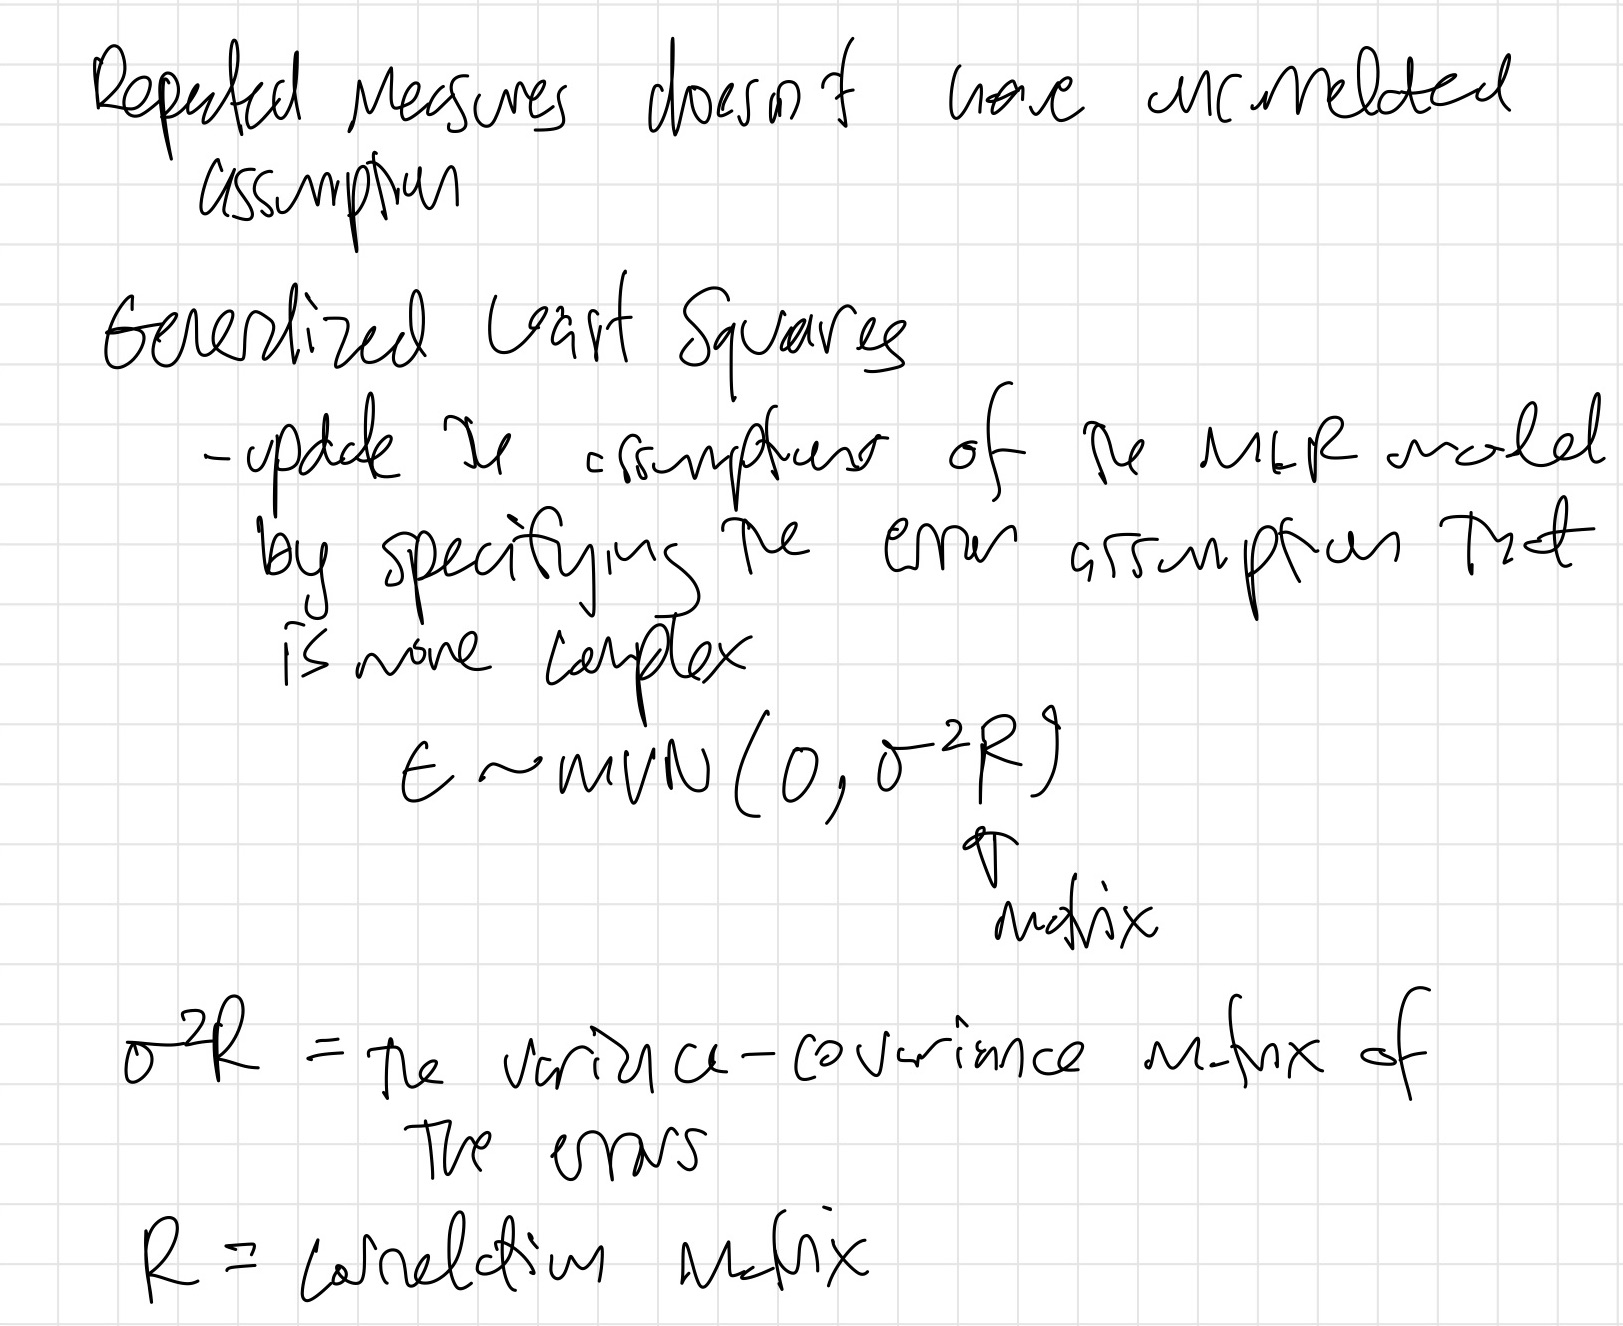 Repeated Measures doesn't have uncorrelated
assumption
Generalized Least Squares
- update the assumptions of the MLR model
by specifying the error assumption that
is more complex
ϵ ~ MVN(0, σ²R)
↑
matrix
σ²R = the variance-covariance matrix of
the errors
R = correlation matrix